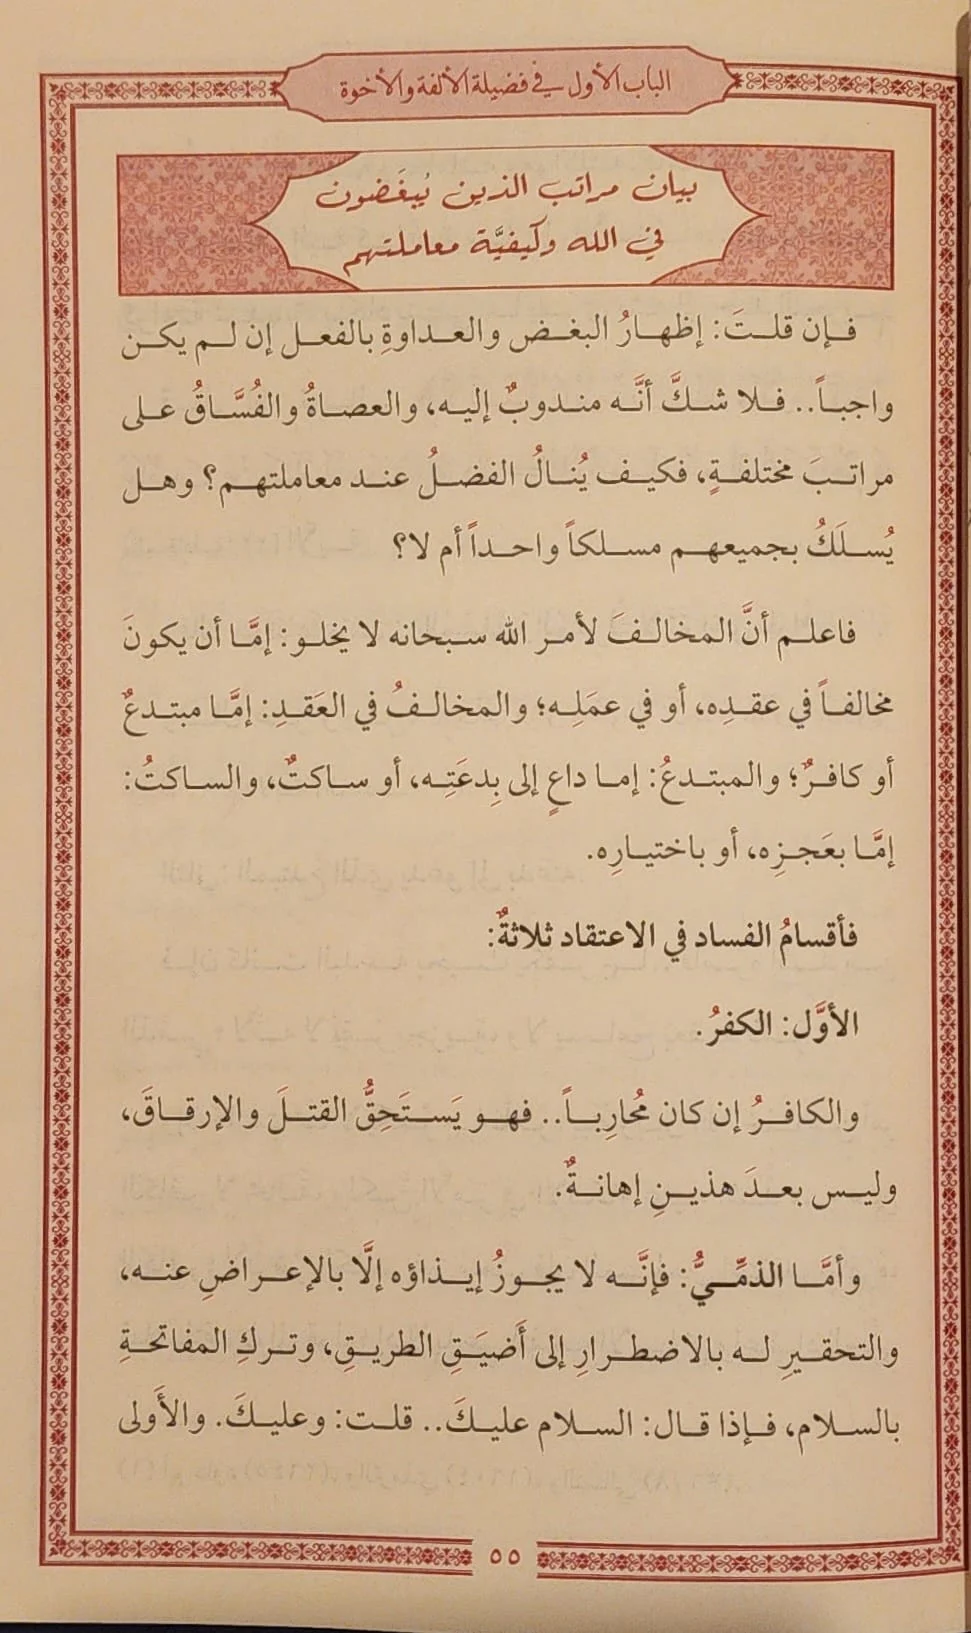 الباب الأول في فضيلة الألفة والأخوة
بيان مراتب الذين يُبغَضون
في الله وكيفيَّة معاملتهم
فإن قلتَ: إظهارُ البغض والعداوةِ بالفعل إن لم يكن
واجباً.. فلا شكَّ أنَّه مندوبٌ إليه، والعصاةُ والفُسَّاقُ على
مراتبَ مختلفةٍ، فكيف يُنالُ الفضلُ عند معاملتهم؟ وهل
يُسلَكُ بجميعهم مسلكاً واحداً أم لا؟
فاعلم أنَّ المخالفَ لأمر الله سبحانه لا يخلو: إمَّا أن يكونَ
مخالفاً في عقدِه، أو في عمَلِه؛ والمخالفُ في العَقدِ: إمَّا مبتدعٌ
أو كافرٌ؛ والمبتدعُ: إما داعٍ إلى بِدعَتِه، أو ساكتٌ، والساكتُ:
إمَّا بعَجزِه، أو باختيارِه.
فأقسامُ الفساد في الاعتقاد ثلاثةٌ:
الأوَّل: الكفرُ.
والكافرُ إن كان مُحارِباً.. فهو يَستَحِقُّ القتلَ والإرقاقَ،
وليس بعدَ هذينِ إهانةٌ.
وأمَّا الذمِّيُّ: فإنَّه لا يجوزُ إيذاؤه إلَّا بالإعراضِ عنه،
والتحقيرِ له بالاضطرارِ إلى أَضيَقِ الطريقِ، وتركِ المفاتحةِ
بالسلام، فإذا قال: السلام عليكَ.. قلت: وعليكَ. والأَولى
٥٥